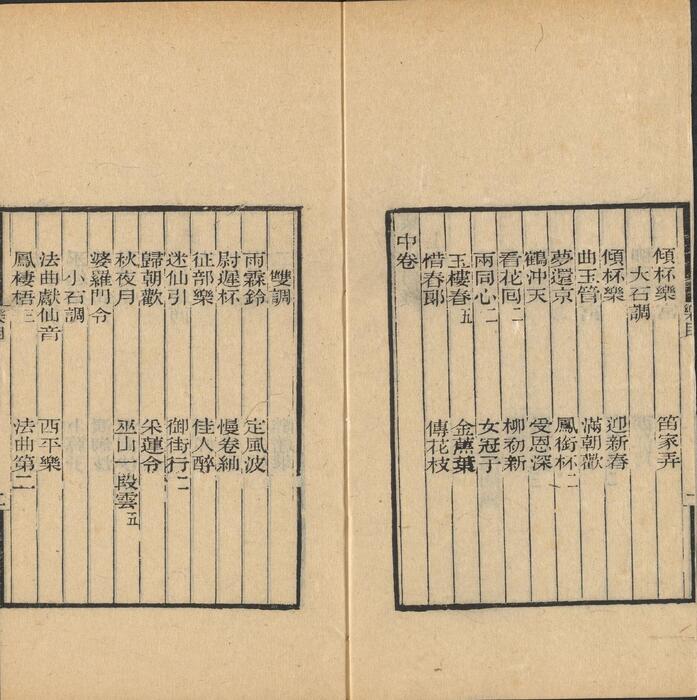 傾杯樂 笛家弄
大石調
傾杯樂 迎新春
曲玉管 滿朝歡
夢還京 鳳銜杯二
鶴沖天 受恩深
看花回二 柳初新
兩同心二 女冠子
玉樓春五 金蕉葉
惜春郎 傳花枝
中卷
雙調
雨霖鈴 定風波
尉遲杯 慢卷紬
征部樂 佳人醉
迷仙引 御街行二
歸朝歡 采蓮令
秋夜月 巫山一段雲五
婆羅門令
小石調
法曲獻仙音 西平樂
鳳棲梧三 法曲第二